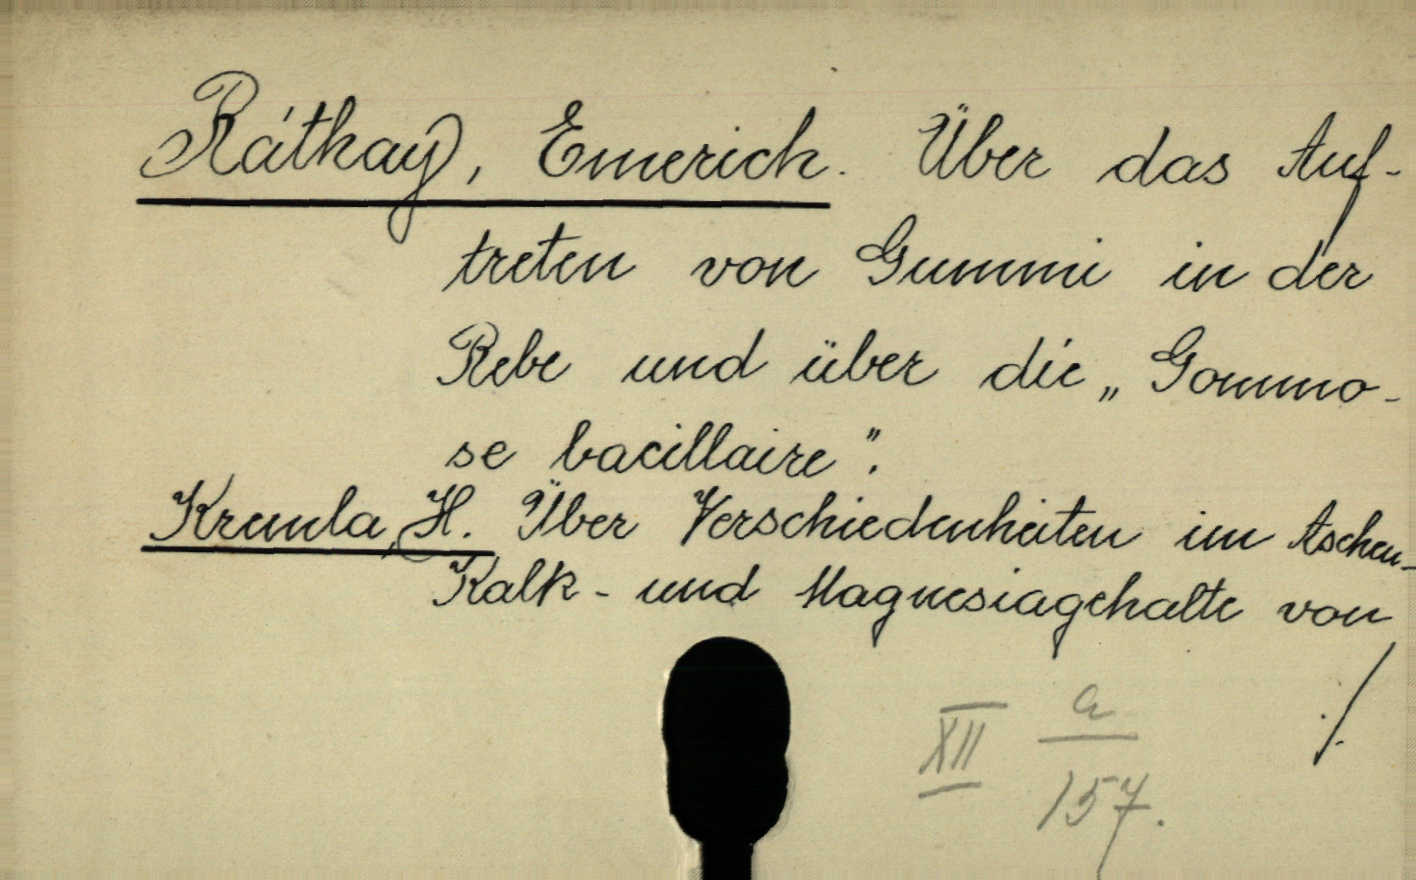 Ráthay, Emerich. Über das Auf-
treten von Gummi in der
Rebe und über die „Gommo-
se bacillaire".
Kremla, H. Über Verschiedenheiten im Aschen-
Kalk- und Magnesiagehalte von
./.
XII a
157.